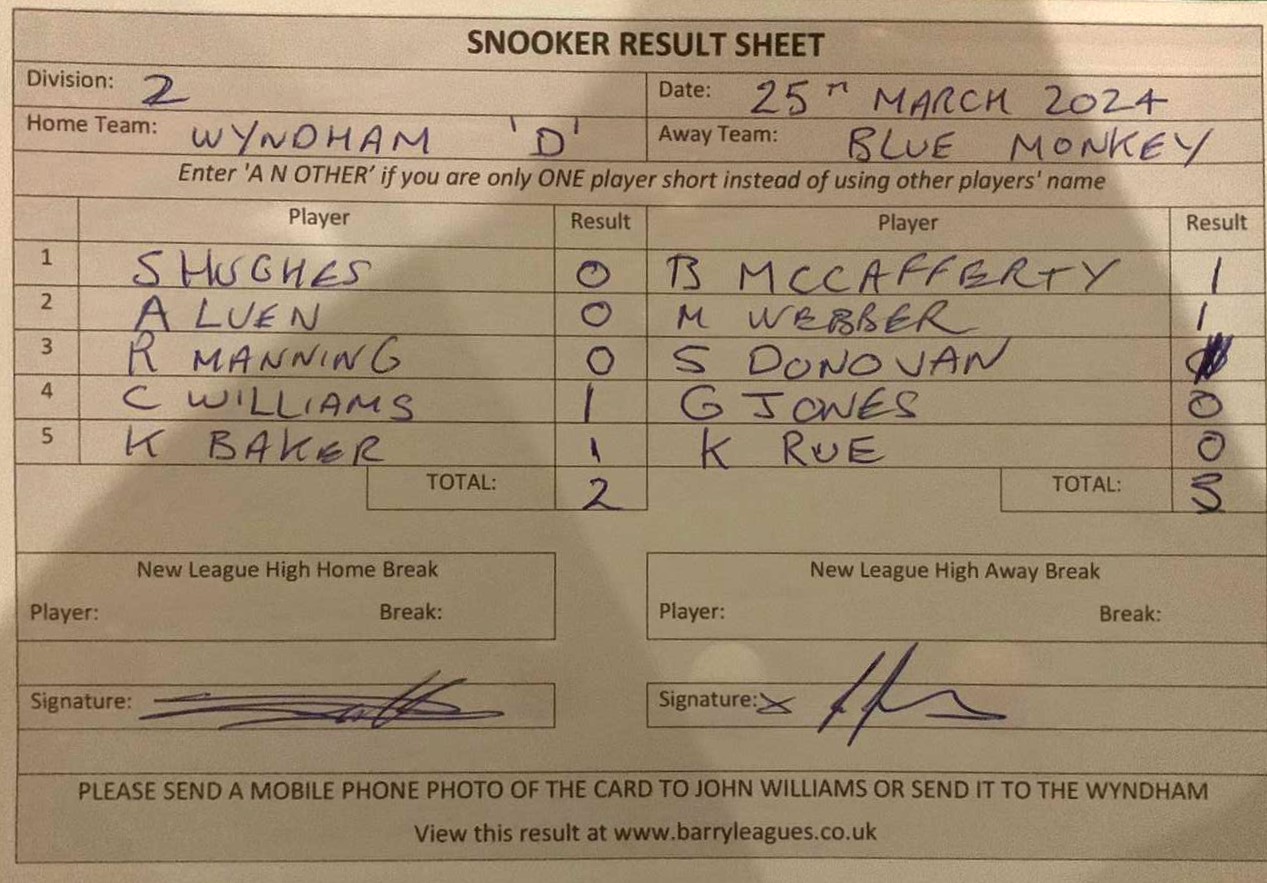 SNOOKER RESULT SHEET
Division: 2 Date: 25TH MARCH 2024
Home Team: WYNDHAM 'D' Away Team: BLUE MONKEY
Enter 'A N OTHER' if you are only ONE player short instead of using other players' name
Player Result Player Result
1 S HUGHES 0 B MCCAFFERTY 1
2 A LUEN 0 M WEBBER 1
3 R MANNING 0 S DONOVAN
4 C WILLIAMS 1 G JONES 0
5 K BAKER 1 K RUE 0
TOTAL: 2 TOTAL: 3
New League High Home Break New League High Away Break
Player: Break: Player: Break:
Signature: Signature: x
PLEASE SEND A MOBILE PHONE PHOTO OF THE CARD TO JOHN WILLIAMS OR SEND IT TO THE WYNDHAM
View this result at www.barryleagues.co.uk